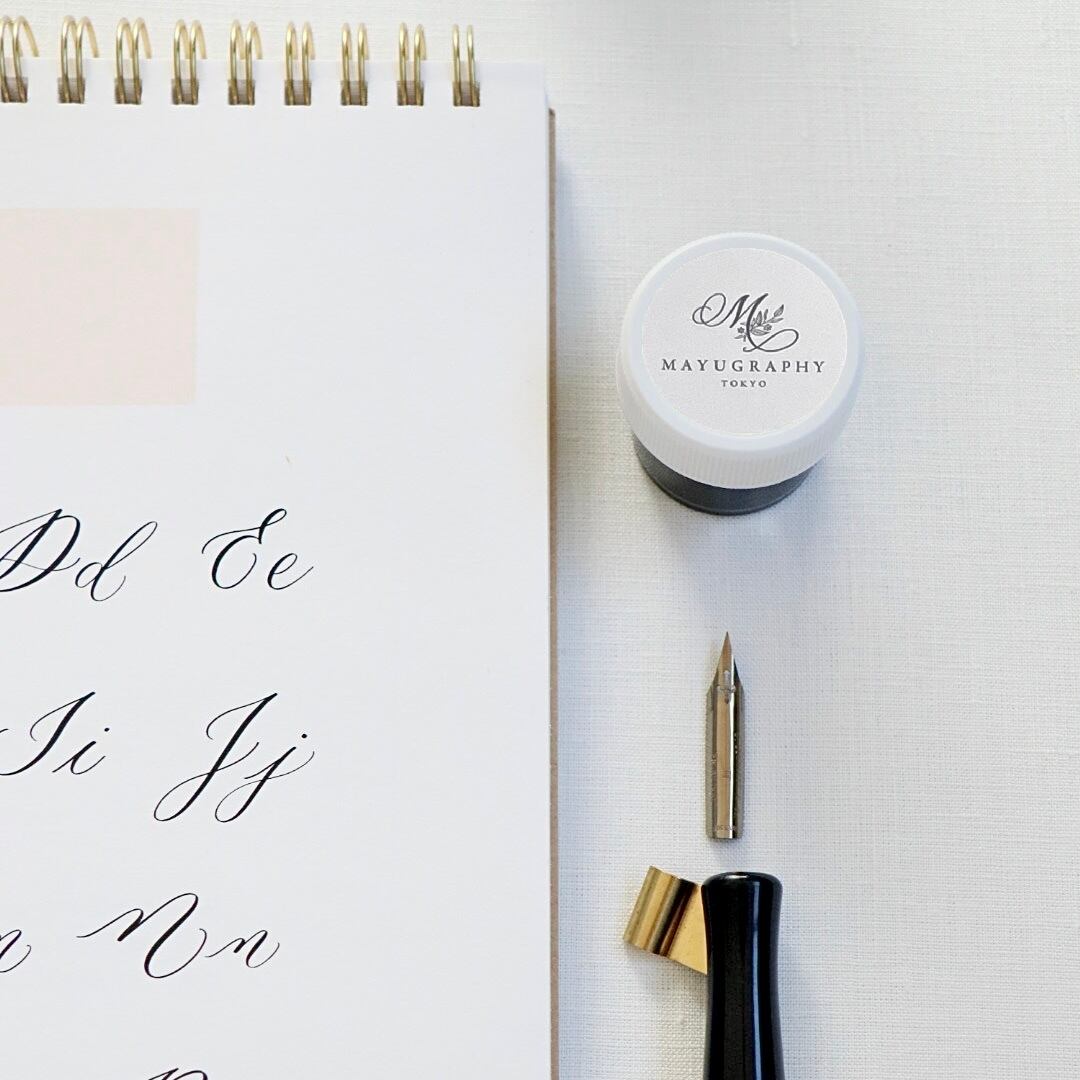 MAYUGRAPHY
TOKYO
Dd Ee
Ii Jj
n Nn